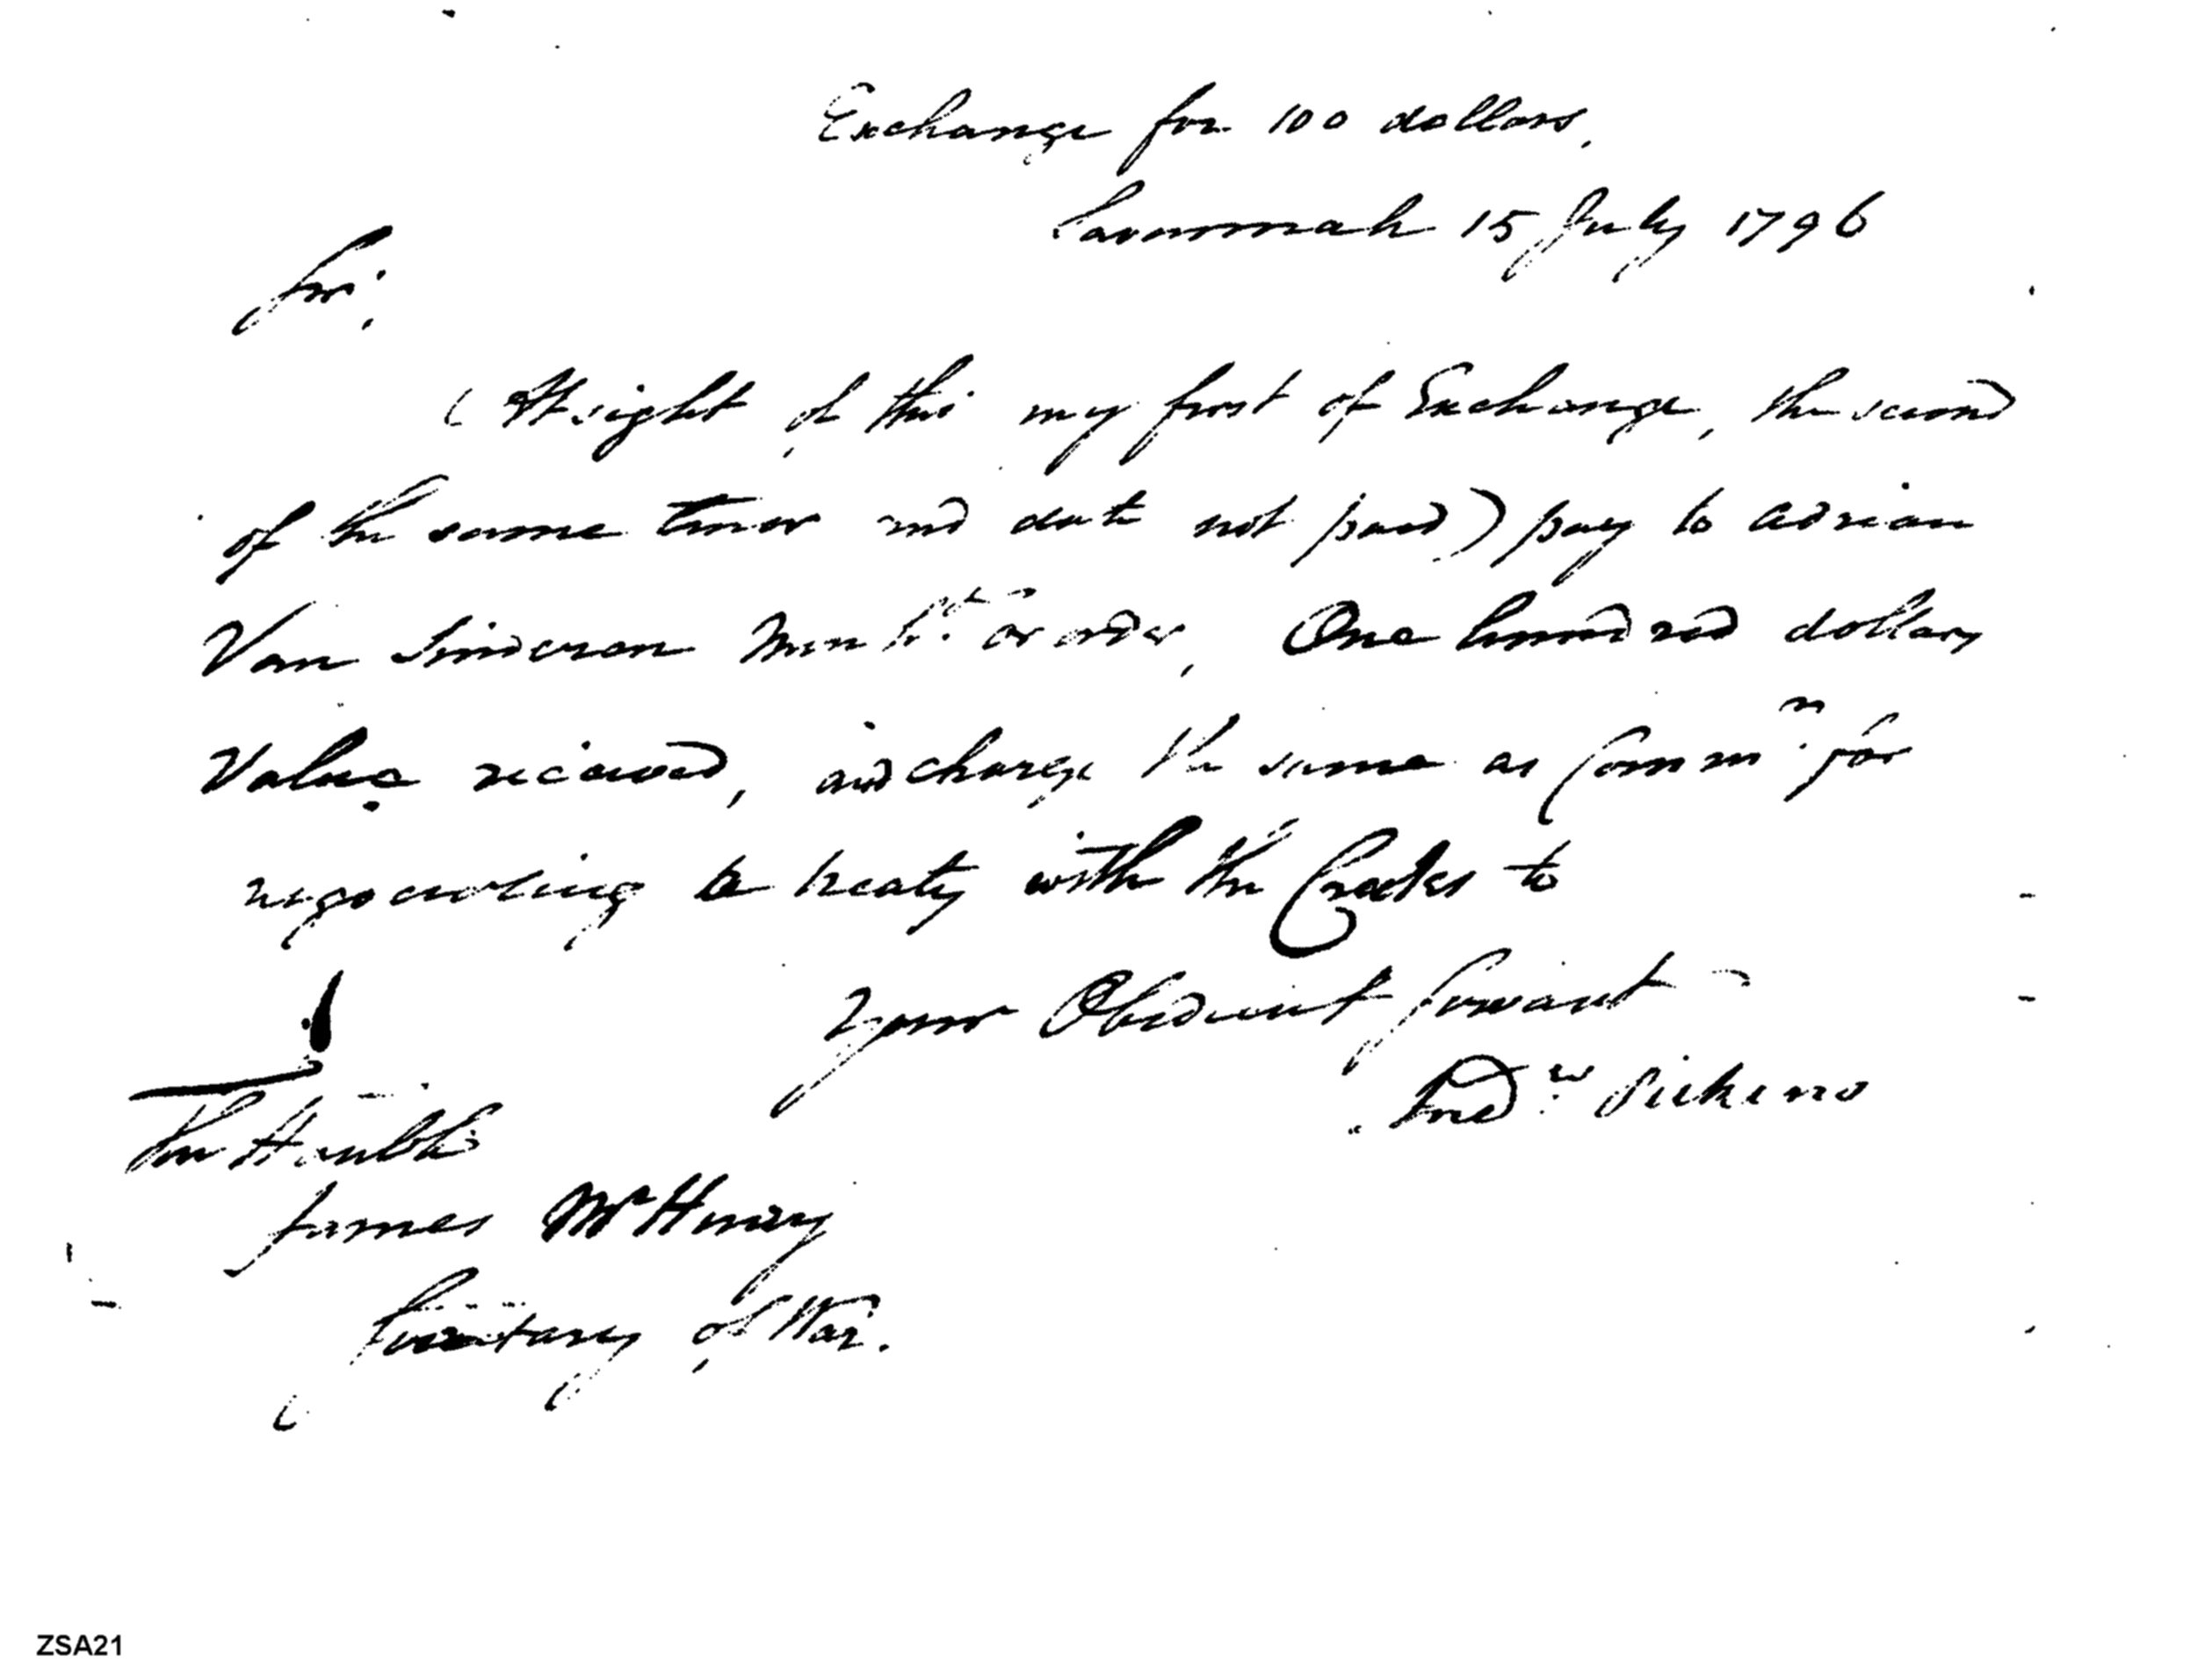 Exchange for 100 dollars,
Savannah 15 July 1796
Sir,
(At sight of this my first of Exchange, the second
of the same tenor and date not paid) pay to Adrian
Van Sinderen or order, One hundred dollars
Value received, and charge the same as Comm.n for
negociating a treaty with the Creeks to
Your Obedient Servant
And.w Pickens
The Hon.ble
James McHenry
Secretary of War.
ZSA21